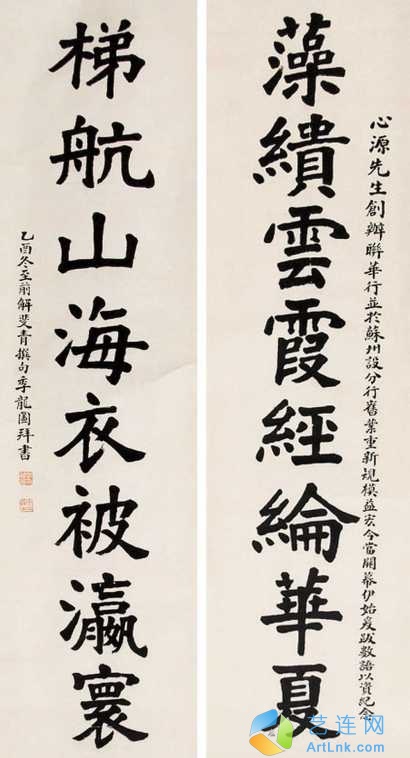 藻繢雲霞經綸華夏
心源先生創辦聯華行並於蘇州設分行舊業重新規模益宏今當開幕伊始爰跋數語以資紀念
梯航山海衣被瀛寰
乙酉冬至前解斐青撰句季龍圖拜書
艺连网
ArtLnk.com